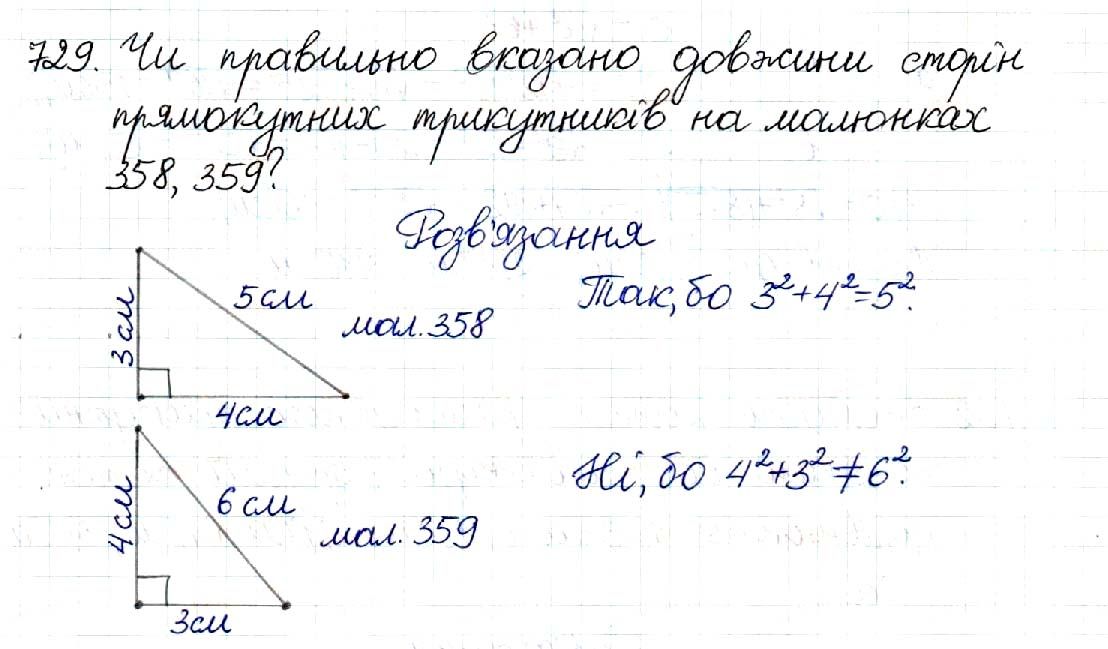 729. Чи правильно вказано довжини сторін
прямокутних трикутників на малюнках
358, 359?
Розв'язання
3 см
5 см
мал. 358
4 см
Так, бо 3²+4²=5².
4 см
6 см
мал. 359
3 см
Ні, бо 4²+3²≠6².